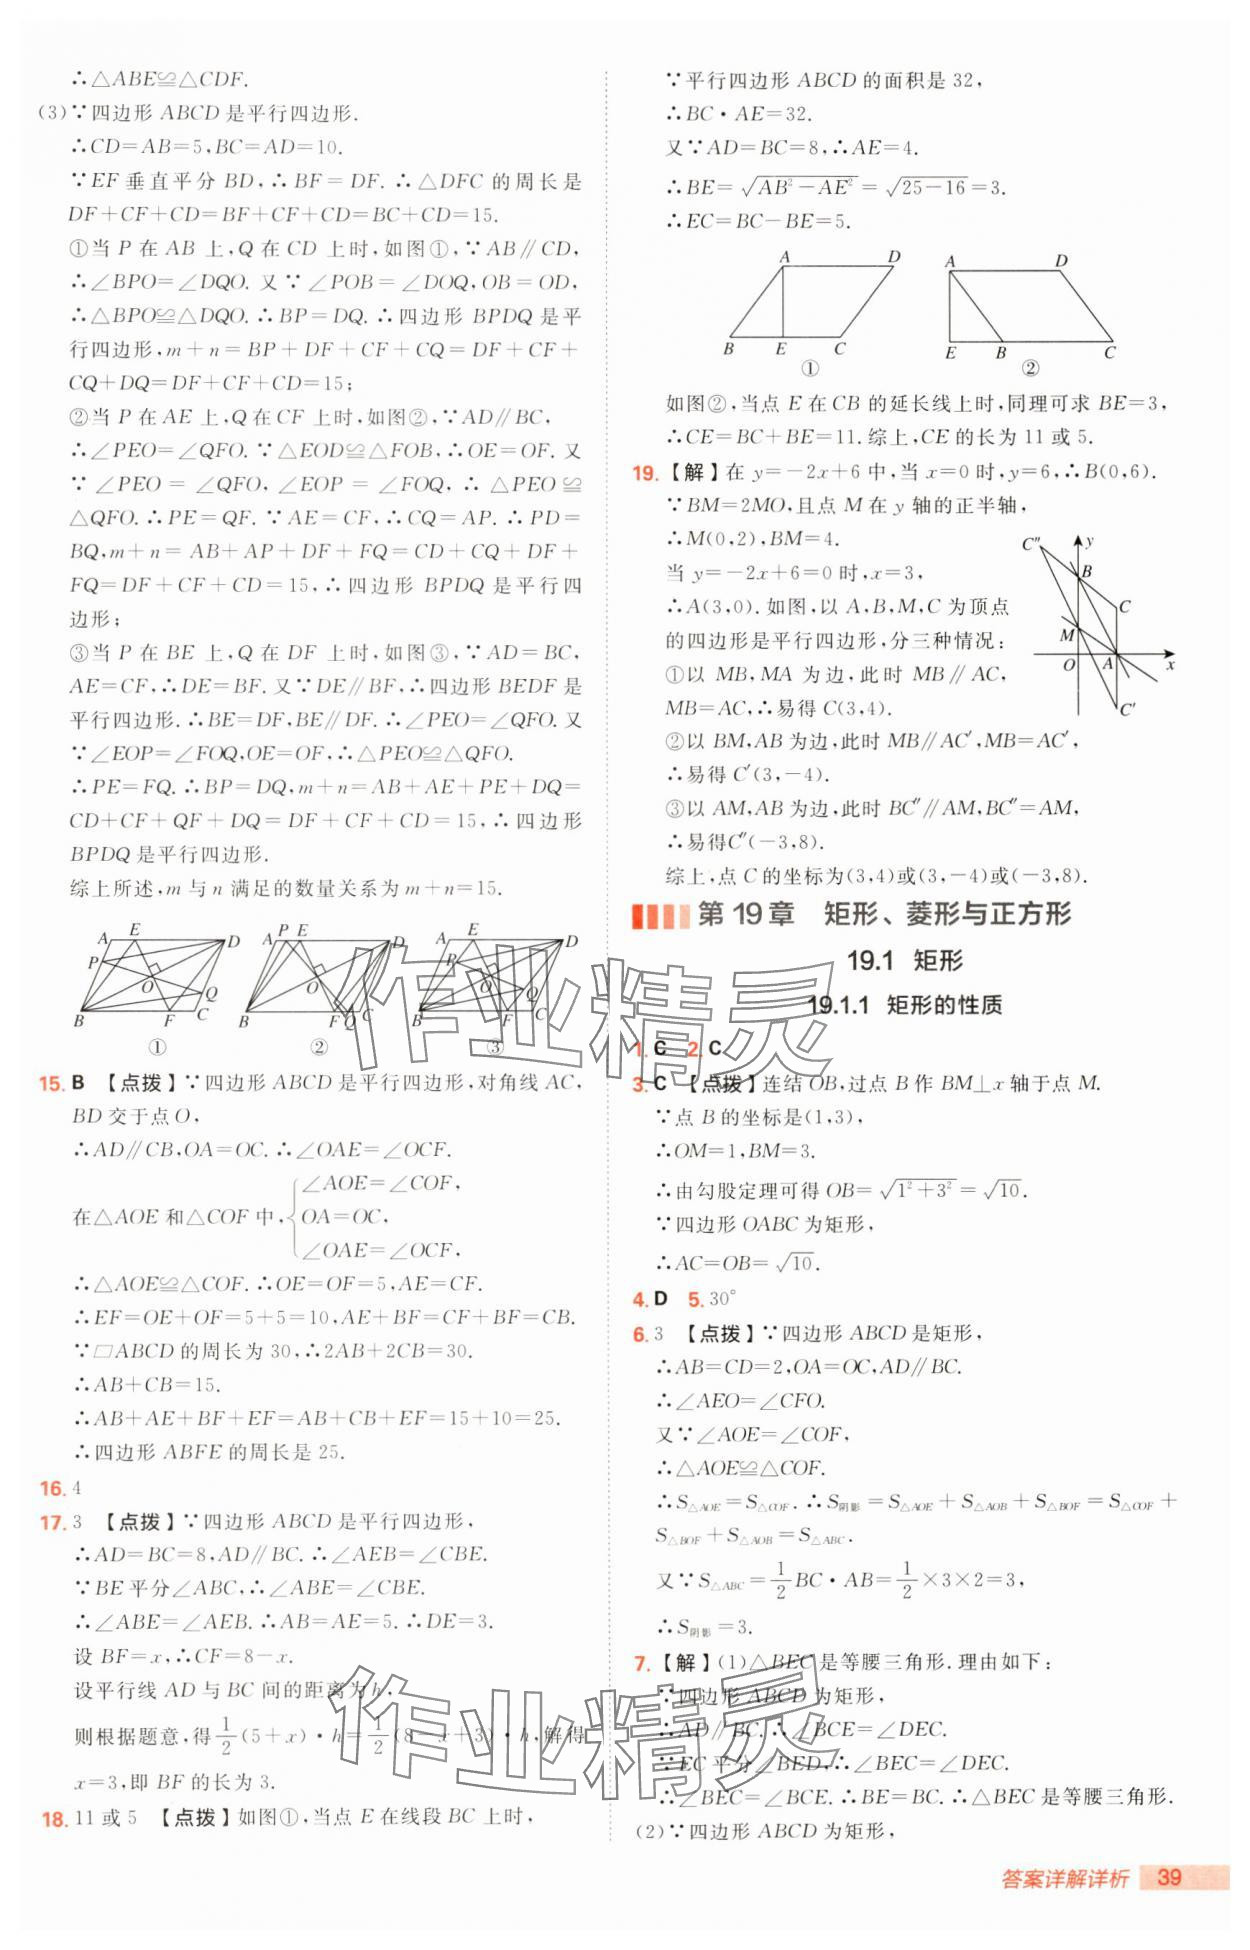 ∴△ABE≌△CDF.
(3)∵四边形 ABCD 是平行四边形.
∴CD=AB=5,BC=AD=10.
∵EF 垂直平分 BD,∴BF=DF.∴△DFC 的周长是
DF+CF+CD=BF+CF+CD=BC+CD=15.
①当 P 在 AB 上,Q 在 CD 上时,如图①,∵AB∥CD,
∴∠BPO=∠DQO. 又∵∠POB=∠DOQ,OB=OD,
∴△BPO≌△DQO.∴BP=DQ.∴四边形 BPDQ 是平
行四边形,m+n=BP+DF+CF+CQ=DF+CF+
CQ+DQ=DF+CF+CD=15;
②当 P 在 AE 上,Q 在 CF 上时,如图②,∵AD∥BC,
∴∠PEO=∠QFO.∵△EOD≌△FOB,∴OE=OF. 又
∵∠PEO=∠QFO,∠EOP=∠FOQ,∴△PEO≌
△QFO.∴PE=QF.∵AE=CF,∴CQ=AP.∴PD=
BQ,m+n=AB+AP+DF+FQ=CD+CQ+DF+
FQ=DF+CF+CD=15,∴四边形 BPDQ 是平行四
边形;
③当 P 在 BE 上,Q 在 DF 上时,如图③,∵AD=BC,
AE=CF,∴DE=BF. 又∵DE∥BF,∴四边形 BEDF 是
平行四边形.∴BE=DF,BE∥DF.∴∠PEO=∠QFO. 又
∵∠EOP=∠FOQ,OE=OF,∴△PEO≌△QFO.
∴PE=FQ.∴BP=DQ,m+n=AB+AE+PE+DQ=
CD+CF+QF+DQ=DF+CF+CD=15,∴四边形
BPDQ 是平行四边形.
综上所述,m 与 n 满足的数量关系为 m+n=15.
A E D P O Q B F C
A P E D O B F Q C
A E D P O Q B F C
① ② ③
15. B 【点拨】∵四边形 ABCD 是平行四边形,对角线 AC,
BD 交于点 O,
∴AD∥CB,OA=OC.∴∠OAE=∠OCF.
在△AOE 和△COF 中,{∠AOE=∠COF,
OA=OC,
∠OAE=∠OCF,
∴△AOE≌△COF.∴OE=OF=5,AE=CF.
∴EF=OE+OF=5+5=10,AE+BF=CF+BF=CB.
∵▱ABCD 的周长为 30,∴2AB+2CB=30.
∴AB+CB=15.
∴AB+AE+BF+EF=AB+CB+EF=15+10=25.
∴四边形 ABFE 的周长是 25.
16. 4
17. 3 【点拨】∵四边形 ABCD 是平行四边形,
∴AD=BC=8,AD∥BC.∴∠AEB=∠CBE.
∵BE 平分∠ABC,∴∠ABE=∠CBE.
∴∠ABE=∠AEB.∴AB=AE=5.∴DE=3.
设 BF=x,∴CF=8-x.
设平行线 AD 与 BC 间的距离为 h,
则根据题意,得 1/2(5+x)·h=1/2(8-x+3)·h,解得
x=3,即 BF 的长为 3.
18. 11 或 5 【点拨】如图①,当点 E 在线段 BC 上时,
∵平行四边形 ABCD 的面积是 32,
∴BC·AE=32.
又∵AD=BC=8,∴AE=4.
∴BE=√(AB²-AE²)=√(25-16)=3.
∴EC=BC-BE=5.
A D B E C
①
A D E B C
②
如图②,当点 E 在 CB 的延长线上时,同理可求 BE=3,
∴CE=BC+BE=11. 综上,CE 的长为 11 或 5.
19. 【解】在 y=-2x+6 中,当 x=0 时,y=6,∴B(0,6).
∵BM=2MO,且点 M 在 y 轴的正半轴,
∴M(0,2),BM=4.
当 y=-2x+6=0 时,x=3,
∴A(3,0). 如图,以 A,B,M,C 为顶点
的四边形是平行四边形,分三种情况:
①以 MB,MA 为边,此时 MB∥AC,
MB=AC,∴易得 C(3,4).
②以 BM,AB 为边,此时 MB∥AC′,MB=AC′,
∴易得 C′(3,-4).
③以 AM,AB 为边,此时 BC″∥AM,BC″=AM,
∴易得C″(-3,8).
综上,点 C 的坐标为(3,4)或(3,-4)或(-3,8).
C″ y B C M O A x C′
第 19 章 矩形、菱形与正方形
19.1 矩形
19.1.1 矩形的性质
1. C 2. C
3. C 【点拨】连结 OB,过点 B 作 BM⊥x 轴于点 M.
∵点 B 的坐标是(1,3),
∴OM=1,BM=3.
∴由勾股定理可得 OB=√(1²+3²)=√10.
∵四边形 OABC 为矩形,
∴AC=OB=√10.
4. D 5. 30°
6. 3 【点拨】∵四边形 ABCD 是矩形,
∴AB=CD=2,OA=OC,AD∥BC.
∴∠AEO=∠CFO.
又∵∠AOE=∠COF,
∴△AOE≌△COF.
∴S△AOE=S△COF.∴S阴影=S△AOE+S△AOB+S△BOF=S△COF+
S△BOF+S△AOB=S△ABC.
又∵S△ABC=1/2BC·AB=1/2×3×2=3,
∴S阴影=3.
7. 【解】(1)△BEC 是等腰三角形. 理由如下:
∵四边形 ABCD 为矩形,
∴AD∥BC.∴∠BCE=∠DEC.
∵EC 平分∠BED,∴∠BEC=∠DEC.
∴∠BEC=∠BCE.∴BE=BC.∴△BEC 是等腰三角形.
(2)∵四边形 ABCD 为矩形,
作业精灵
作业精灵
答案详解详析 39